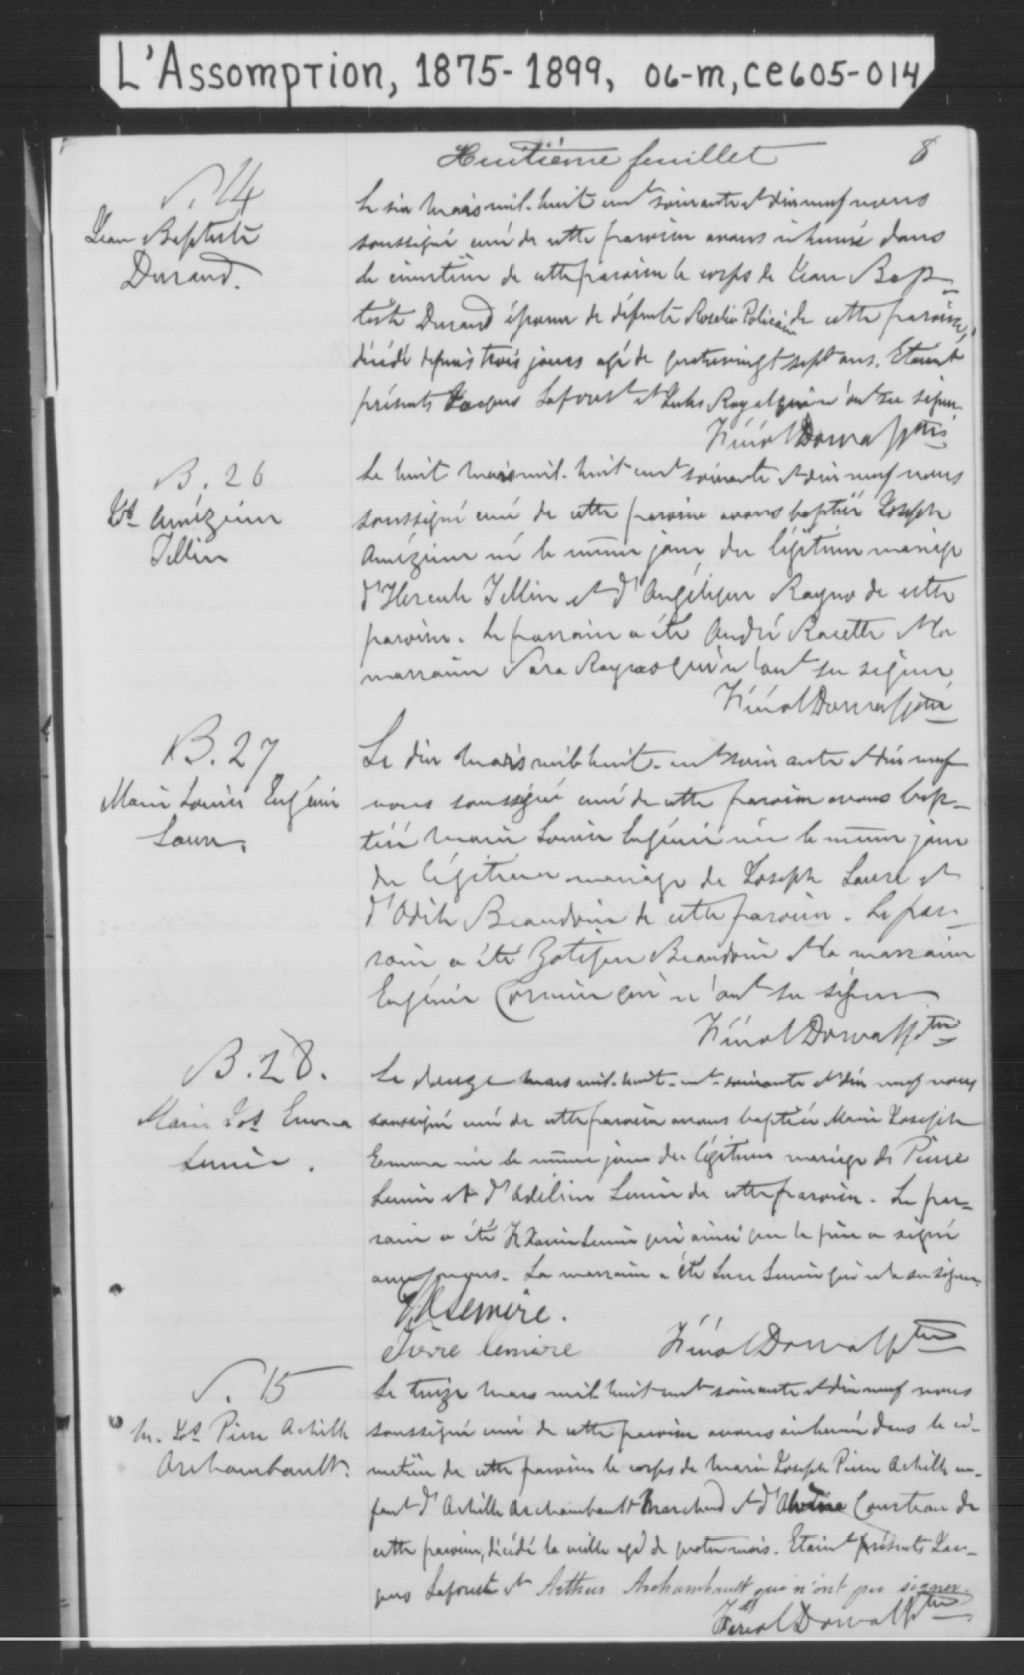 L'Assomption, 1875-1899, 06-m, ce605-014
Huitième feuillet 8
S. 14
Jean Baptiste
Durand.
Le six mars mil-huit cent soixante et dix neuf nous
soussigné curé de cette paroisse avons inhumé dans
le cimetière de cette paroisse le corps de Jean Bap-
tiste Durand époux de défunte Roselie de cette paroisse,
décédé depuis trois jours agé de quatrevingt sept ans. Etaient
présents Jacques Laforest et Jules qui n'ont su signer
Dorval Ptre
B. 26
Jos Amézime
Tellier
Le huit mars mil-huit cent soixante et dix neuf nous
soussigné curé de cette paroisse avons baptisé Joseph
né le même jour du légitime mariage
d'Hercule Tellier et d'Angélique de cette
paroisse. Le parrain a été André et la
marraine qui n'ont su signer
Dorval Ptre
B. 27
Marie Louise Eugénie
Le dix mars mil-huit-cent soixante et dix neuf
nous soussigné curé de cette paroisse avons bap-
tisé Marie Louise Eugénie née le même jour
du légitime mariage de Joseph et
d'Odile Beaudoin de cette paroisse. Le par-
rain a été Beaudoin et la marraine
Eugénie qui n'ont su signer
Dorval Ptre
B. 28.
Marie Jos Emma
Lemire.
Le douze mars mil-huit-cent-soixante et dix neuf nous
soussigné curé de cette paroisse avons baptisé Marie Joseph
Emma née le même jour du légitime mariage de Pierre
Lemire et d'Adeline Lemire de cette paroisse. Le par-
rain a été Lemire qui ainsi que le père a signé
avec nous. La marraine a été Lemire qui n'a su signer
Lemire.
Pierre Lemire
Dorval Ptre
S. 15
M. Jos Pierre Achille
Archambault
Le treize mars mil huit cent soixante et dix neuf nous
soussigné curé de cette paroisse avons inhumé dans le ci-
metière de cette paroisse le corps de Marie Joseph Pierre Achille en-
fant d'Achille Archambault Marchand et d' de
cette paroisse, décédé la veille agé de quatre mois. Etaient présents Jac-
ques Laforest et Arthur Archambault qui n'ont pu signer.
Dorval Ptre